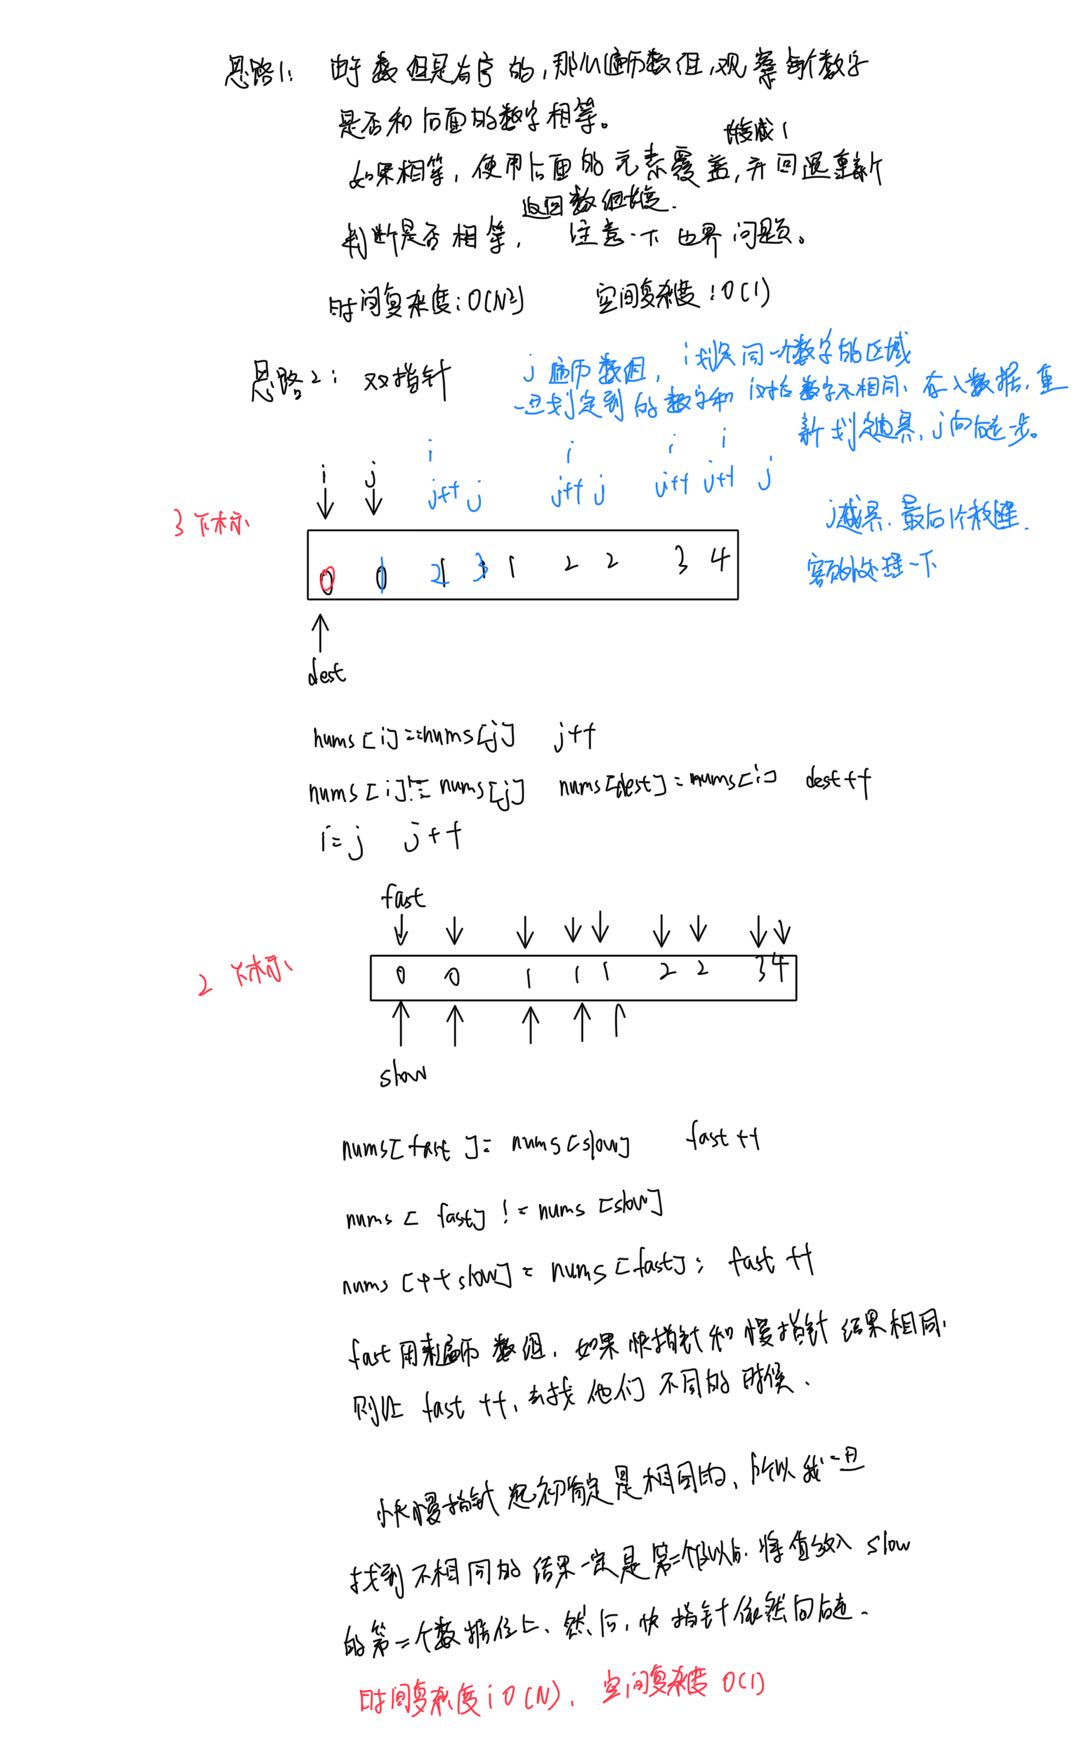 思路1: 由于数组是有序的,那么遍历数组,观察每个数字
是否和后面的数字相等。
长度减1
如果相等,使用后面的元素覆盖,并回退重新
返回数组长度.
判断是否相等, 注意一下边界问题。
时间复杂度:O(N²) 空间复杂度:O(1)
思路2: 双指针
j遍历数组, i划定同一个数字的区域
一旦划定到的数字和i对应数字不相同,存入数据,重
新划定边界,j向后走一步。
i i i i
i j j++ j j++ j j++ j++ j
3下标
j越界,最后1个数据
额外处理一下
0 0 1 1 1 2 2 3 4
0 1 2 3
dest
nums[i]==nums[j] j++
nums[i]!=nums[j] nums[dest]=nums[i] dest++
i=j j++
fast
2下标
0 0 1 1 1 2 2 3 4
slow
nums[fast]= nums[slow] fast++
nums[fast] != nums[slow]
nums[++slow] = nums[fast]; fast++
fast用来遍历数组,如果快指针和慢指针结果相同,
则让 fast ++,去找他们不同的时候.
快慢指针起初肯定是相同的,所以我一旦
找到不相同的结果一定是第二个以后.将值放入 slow
的第二个数据位上、然后,快指针依然向后走.
时间复杂度:O(N), 空间复杂度O(1)